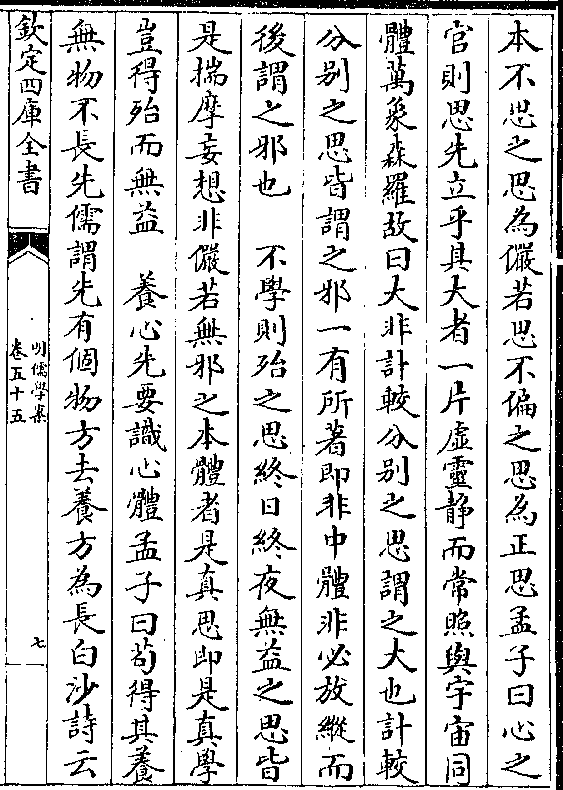 本不思之思為儼若思不偏之思為正思孟子曰心之
官則思先立乎其大者一片虛靈静而常照與宇宙同
體萬象森羅故曰大非計較分别之思謂之大也計較
分别之思皆謂之邪一有所著即非中體非必放縱而
後謂之邪也　不學則殆之思終日終夜無益之思皆
是揣摩妄想非儼若無邪之本體者是真思即是真學
豈得殆而無益　養心先要識心體孟子曰茍得其養
無物不長先儒謂先有個物方去養方為長白沙詩云
欽定四庫全書
明儒學案
卷五十五
七